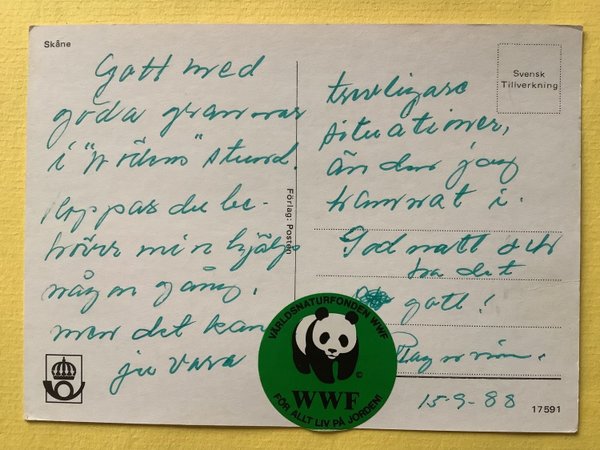 Skåne
Gott med
goda grannar
i "nödens" stund.
Hoppas du be-
höver min hjälp
någon gång,
men det kan
ju vara
Förlag: Posten
Svensk
Tillverkning
trevligare
situationer,
än den jag
hamnat i.
God natt och
ha det
gott!
15-9-88
17591
VÄRLDSNATURFONDEN WWF
©
WWF
FÖR ALLT LIV PÅ JORDEN!